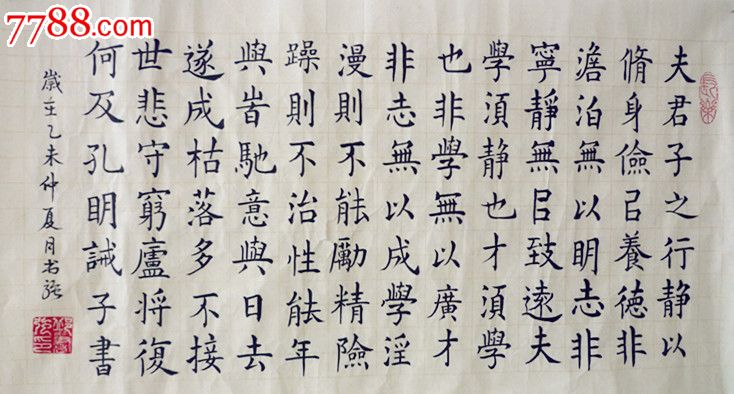 7788.com
長樂
夫君子之行静以
脩身儉㠯養德非
澹泊無以明志非
寧靜無㠯致遠夫
學須静也才須學
也非學無以廣才
非志無以成學淫
漫則不能勵精險
躁則不治性能年
與旹馳意與日去
遂成枯落多不接
世悲守窮廬将復
何及孔眀誡子書
歲在乙未仲夏月书